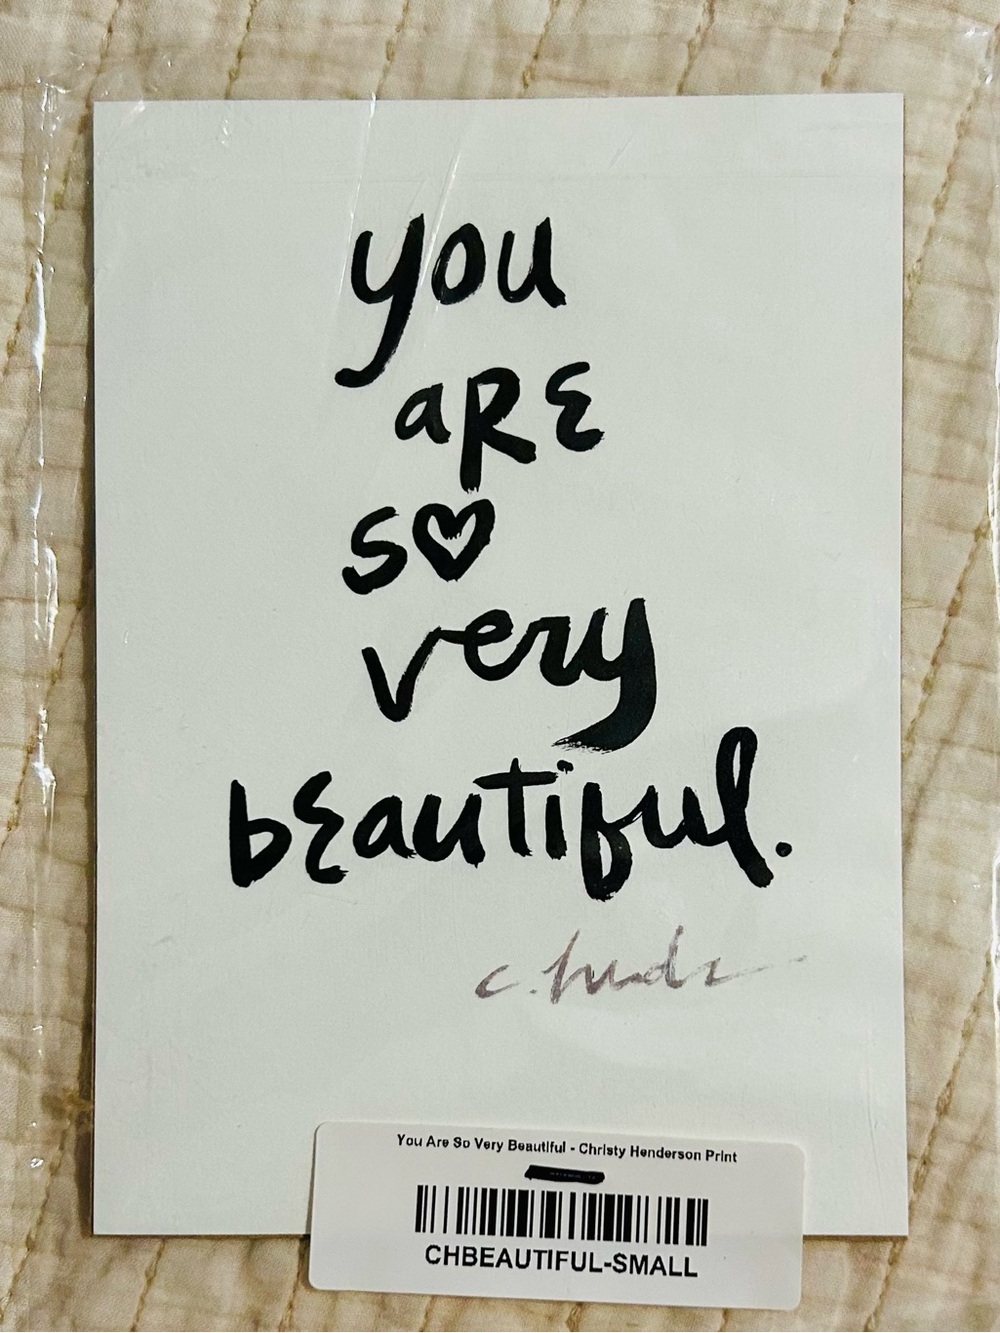 you
aRE
so
very
bEautiful.
You Are So Very Beautiful - Christy Henderson Print
CHBEAUTIFUL-SMALL